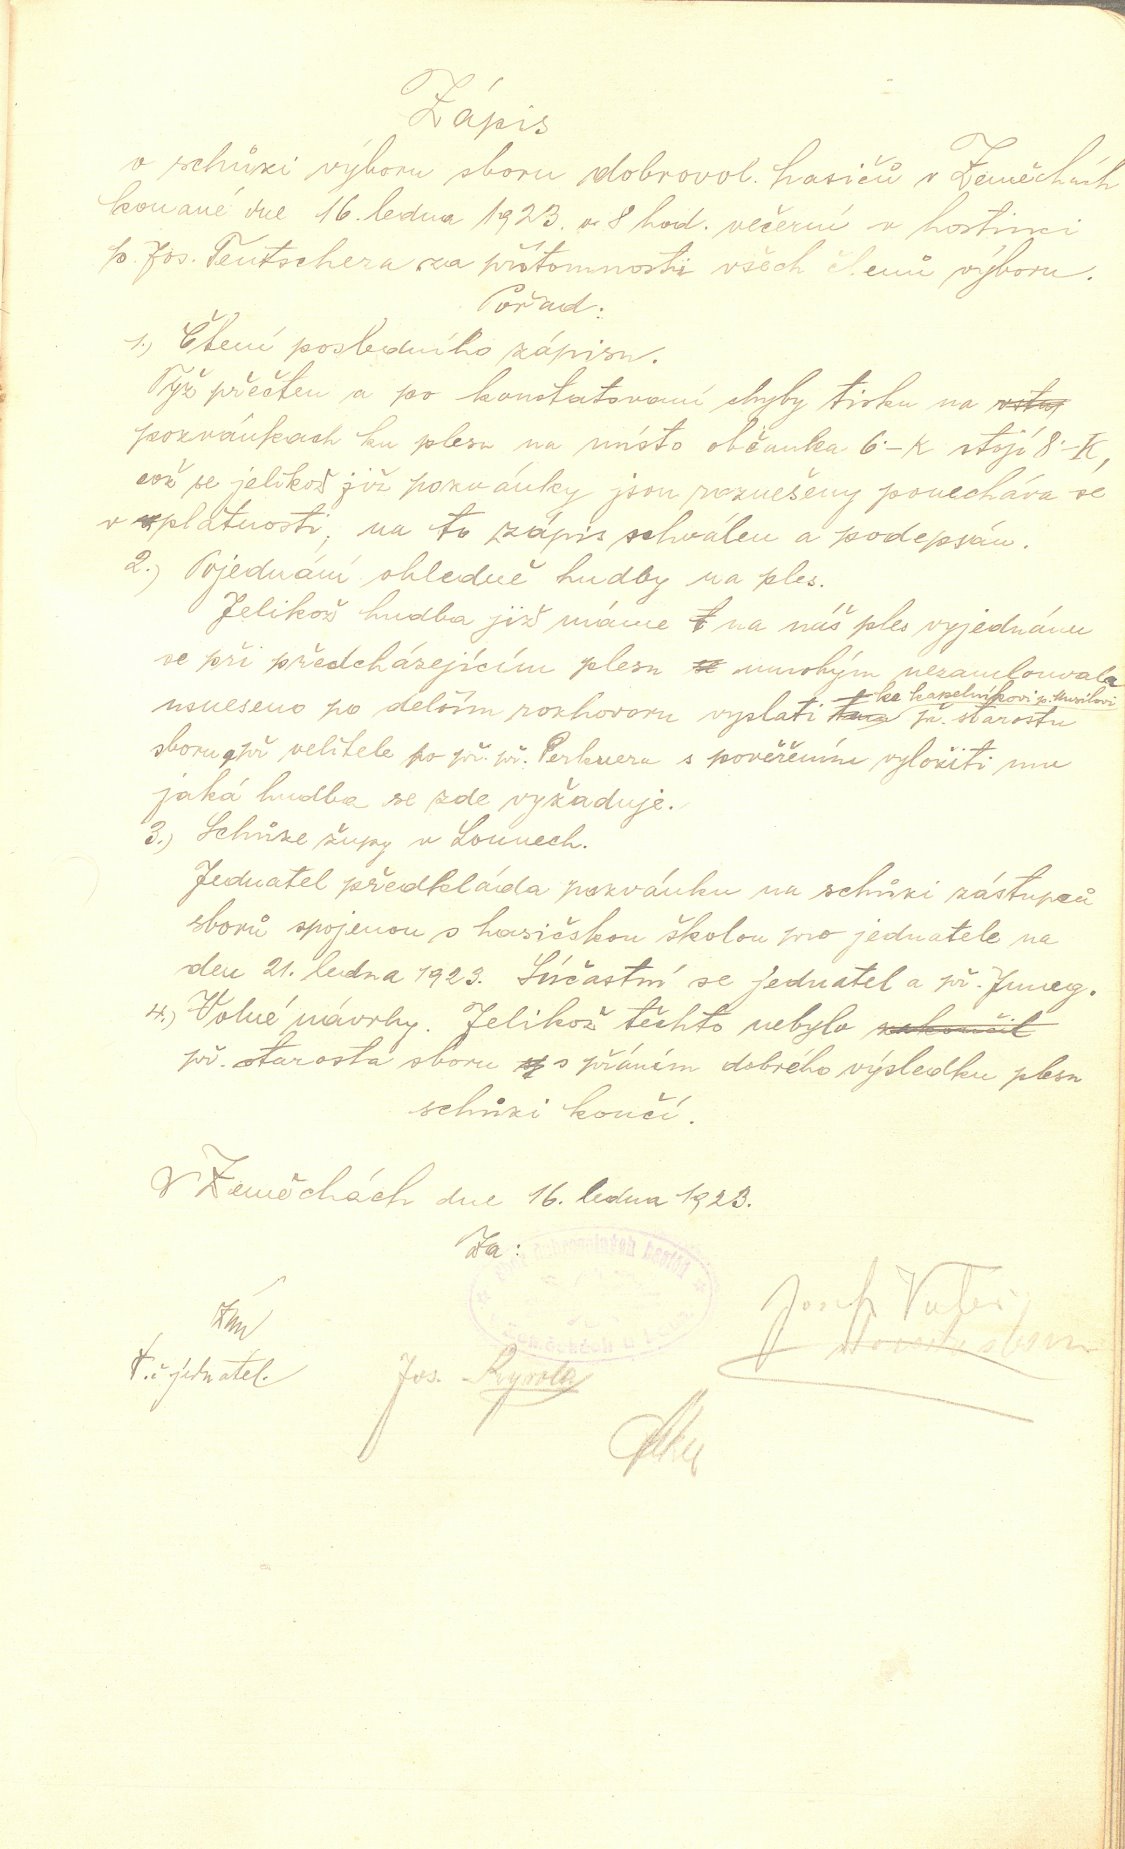 Zápis
o schůzi výboru sboru dobrovol. hasičů v Zeměchách
konané dne 16. ledna 1923. v 8 hod. večerní v hostinci
p. Jos. Teutschera za přítomnosti všech členů výboru.
Pořad:
1.) Čtení posledního zápisu.
Týž přečten a po konstatovaní chyby tisku na vstup
pozvánkach ku plesu na místo občanka 6·– K stojí 8·– K,
což se jelikož již pozvánky jsou roznešeny ponechává se
v platnosti, na to zápis schválen a podepsán.
2.) Pojednání ohledně hudby na ples.
Jelikož hudba již máme na náš ples vyjednánu
se při předcházejícím plesu se mnohým nezamlouvala
ke kapelníkovi p. Musilovi
usneseno po delším rozhovoru vyslati př. starostu
sboru, př velitele po př. př. Perknera s pověřením vyložiti mu
jaká hudba se zde vyžaduje.
3.) Schůze župy v Lounech.
Jednatel předkláda pozvánku na schůzi zástupců
sborů spojenou s hasičskou školou pro jednatele na
den 21. ledna 1923. Súčastní se jednatel a př. Juneg.
4.) Volné návrhy. Jelikož těchto nebylo zakončil
př. starosta sboru s přáním dobrého výsledku plesu
schůzi končí.
V Zeměchách dne 16. ledna 1923.
Za:
t. č jednatel.
Jos.
Josef
starosta sboru